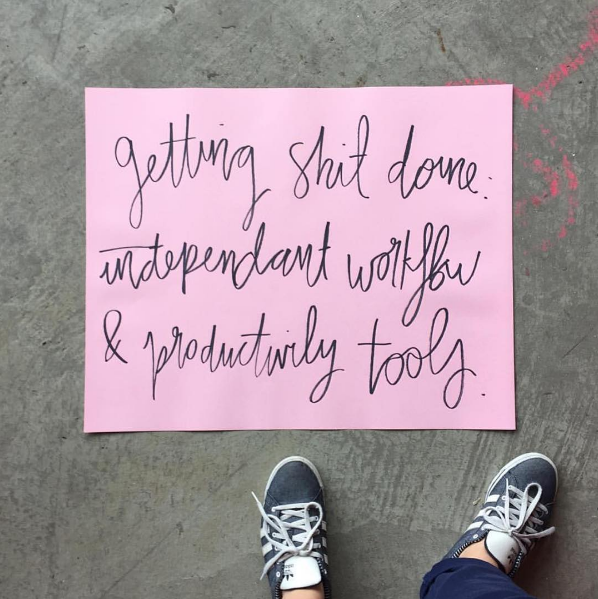 getting shit done:
independant workflow
& productivity tools.